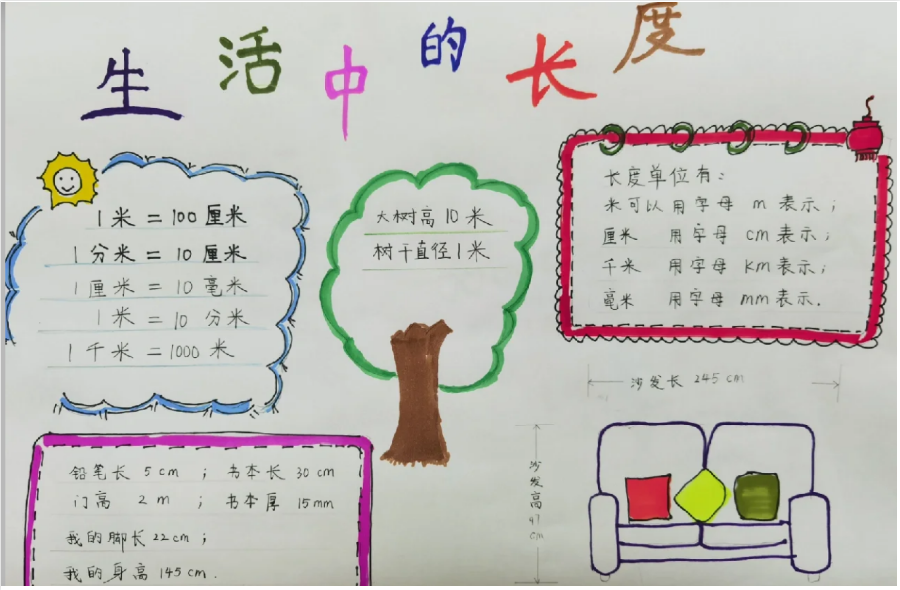 生活中的长度
1米=100厘米
1分米=10厘米
1厘米=10毫米
1米=10分米
1千米=1000米
大树高10米
树干直径1米
长度单位有：
米可以用字母 m 表示；
厘米 用字母 cm 表示；
千米 用字母 km 表示；
毫米 用字母 mm 表示.
沙发长 245cm
沙发高91cm
铅笔长 5cm ；书本长 30cm
门高 2m ；书本厚 15mm
我的脚长22cm；
我的身高145cm.